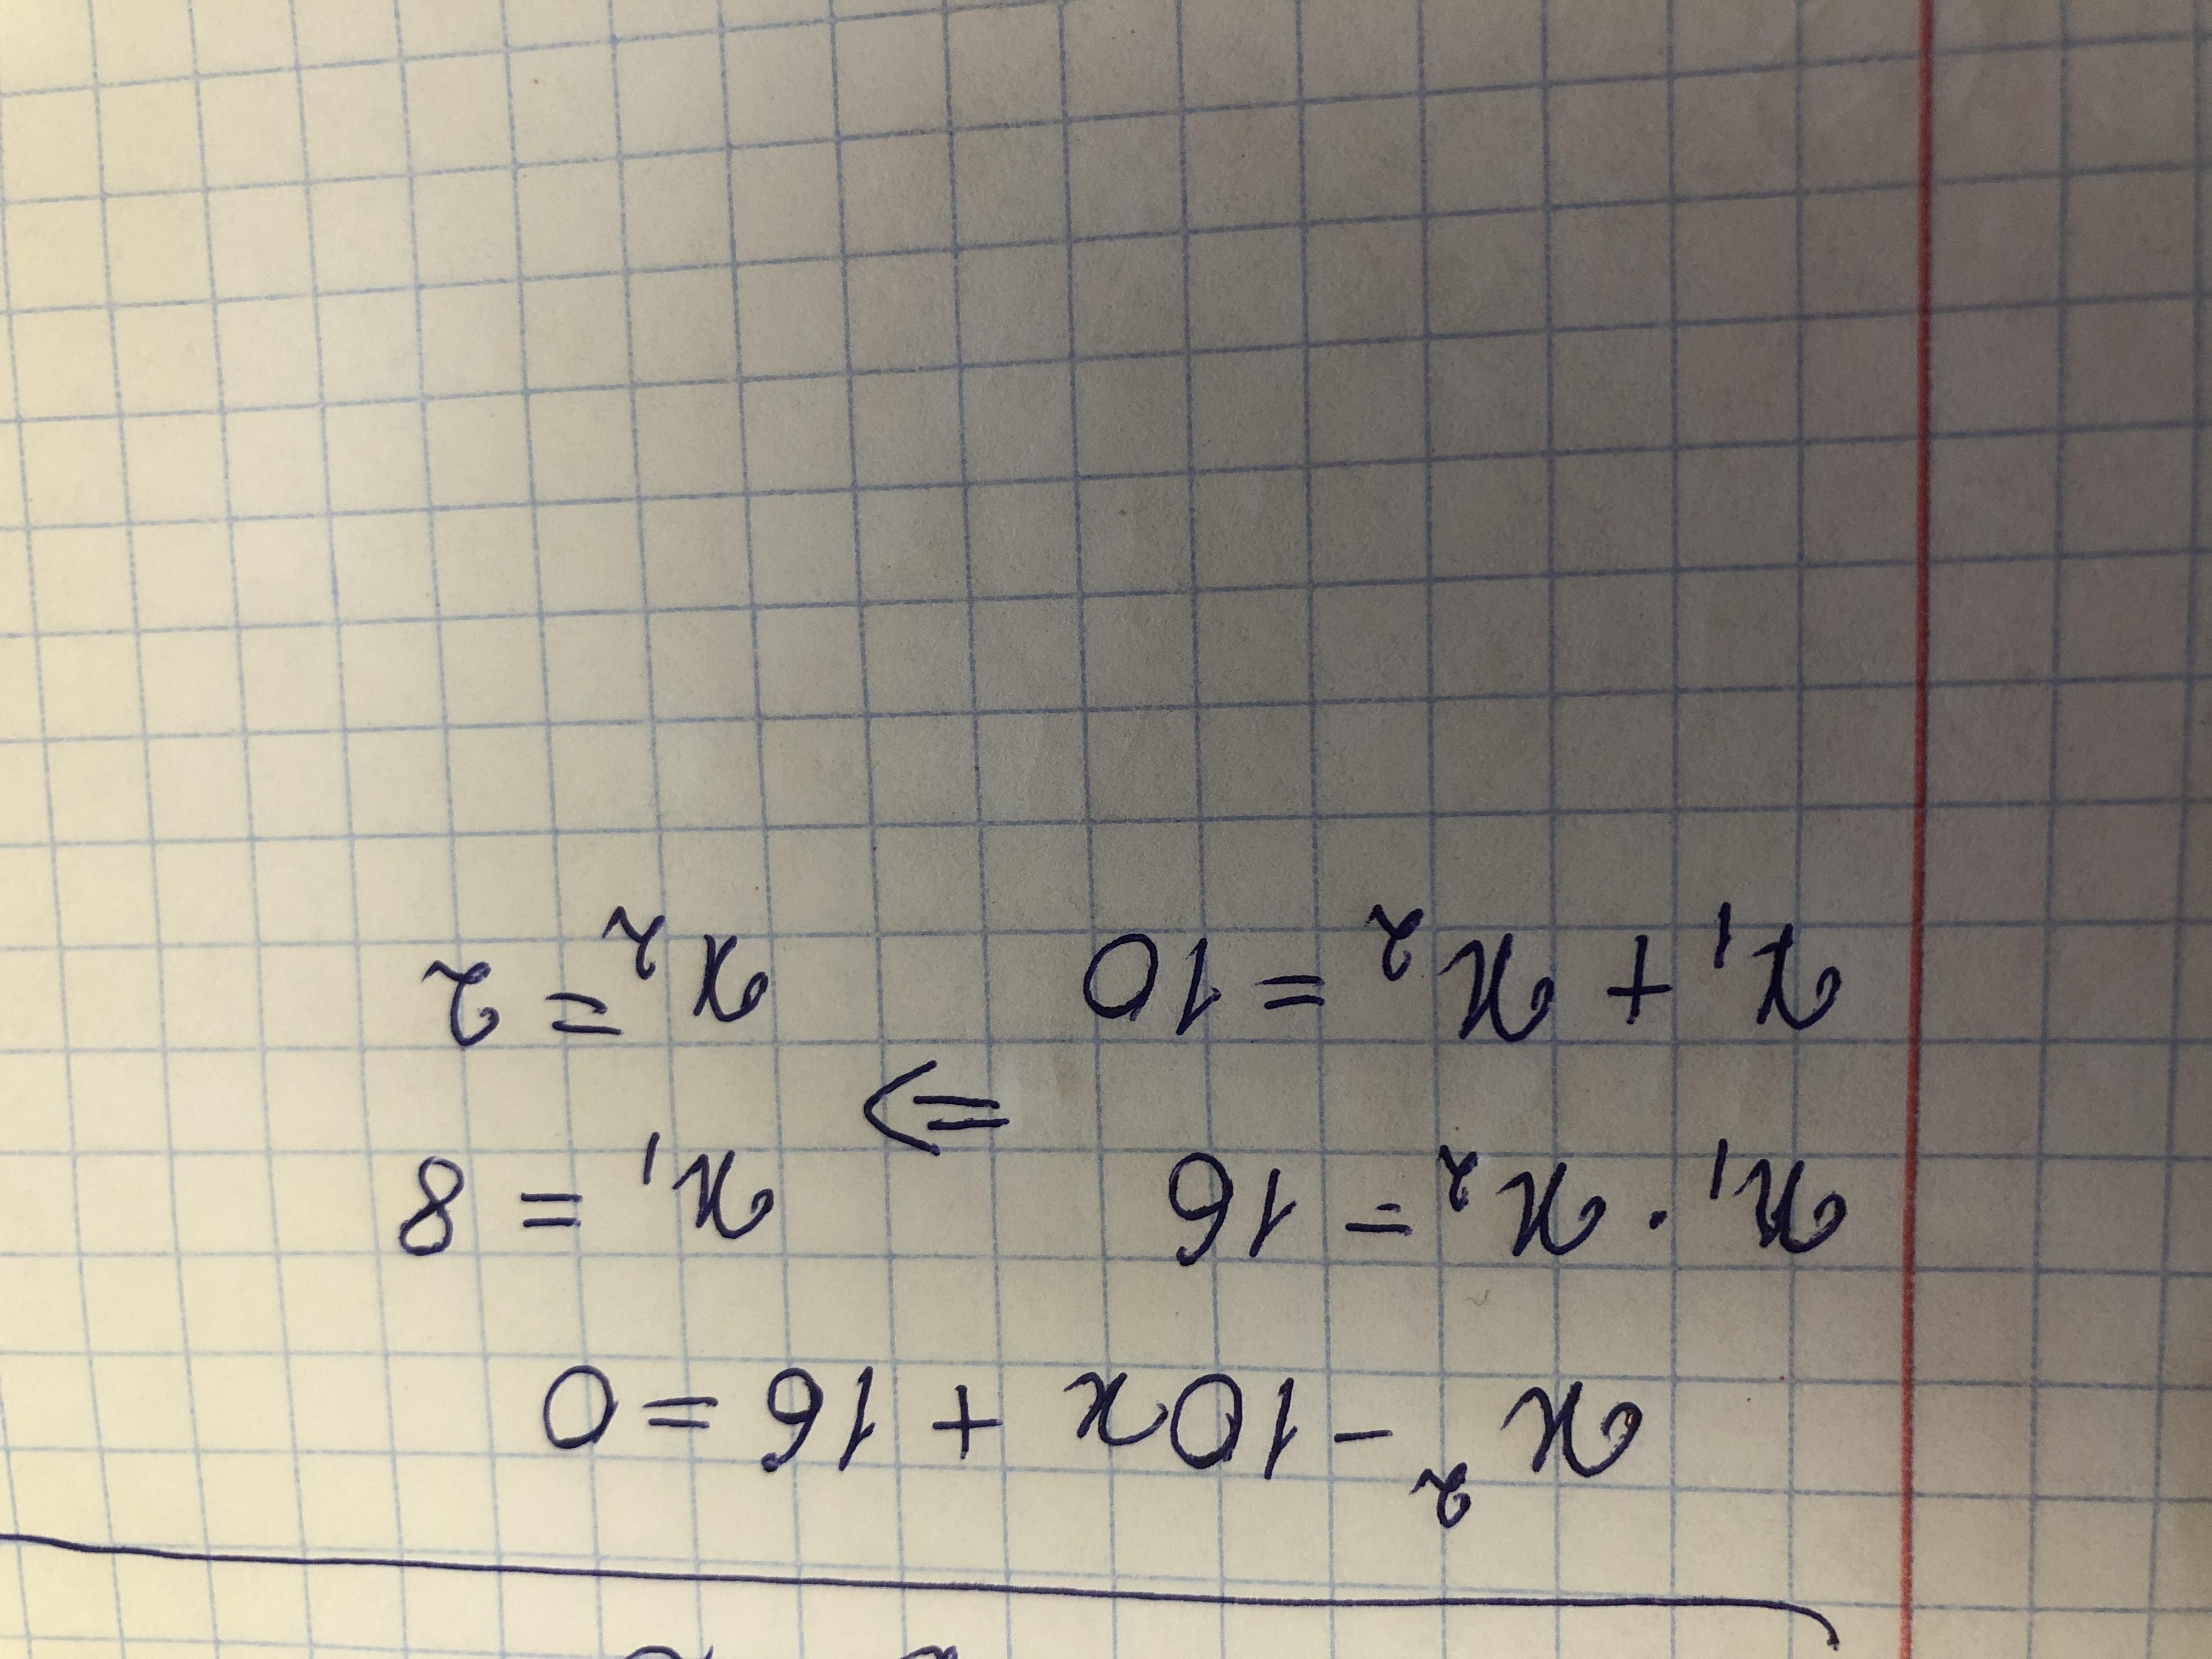 x² - 10x + 16 = 0
x₁ · x₂ = 16 x₁ = 8
=>
x₁ + x₂ = 10 x₂ = 2